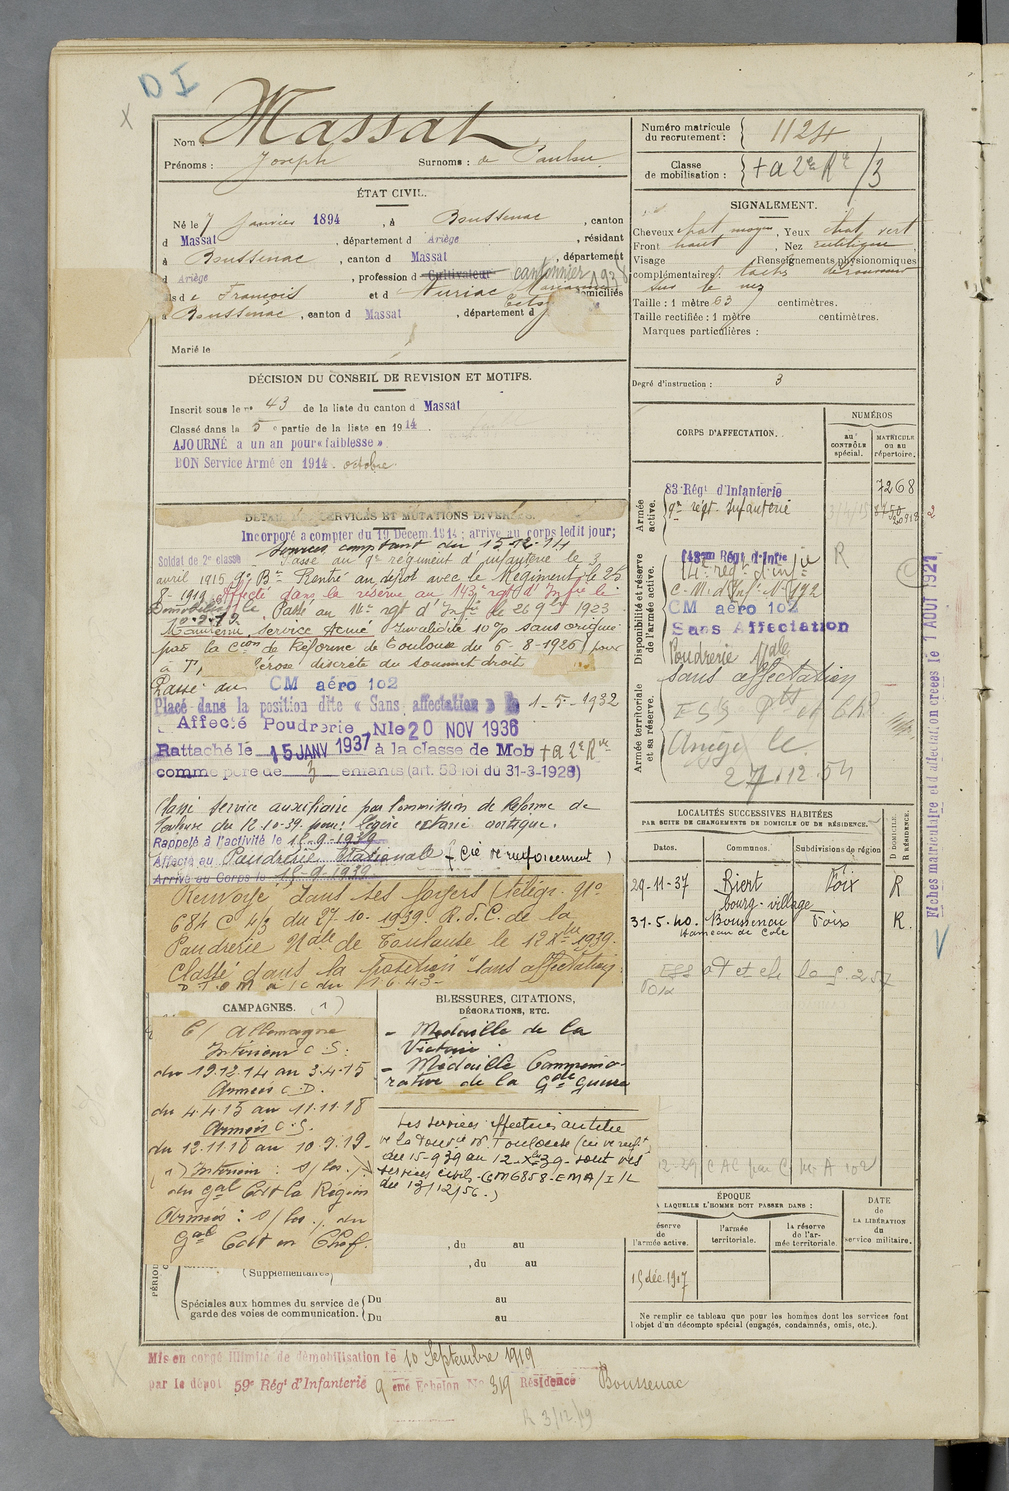 D I
Nom : Massat
Prénoms : Joseph Surnoms : de Paulou
Numéro matricule du recrutement : 1124
Classe de mobilisation : + a 2e Rve /3
ÉTAT CIVIL.
Né le 7 Janvier 1894, à Boussenac, canton
d Massat, département d Ariège, résidant
à Boussenac, canton d Massat, département
d Ariège, profession d Cultivateur cantonnier 1938
de François et d Nuriac Marianne domiciliés
à Boussenac, canton d Massat, département d
Marié le
SIGNALEMENT.
Cheveux chat. moyen, Yeux chat. vert
Front haut, Nez rectiligne
Visage Renseignements physionomiques
complémentaires : tache de rousseur
sur le nez
Taille : 1 mètre 63 centimètres.
Taille rectifiée : 1 mètre centimètres.
Marques particulières :
Degré d'instruction : 3
DÉCISION DU CONSEIL DE REVISION ET MOTIFS.
Inscrit sous le n° 43 de la liste du canton d Massat
Classé dans la 5e partie de la liste en 1914.
AJOURNÉ à un an pour « faiblesse »
BON Service Armé en 1914. octobre
DÉTAIL DES SERVICES ET MUTATIONS DIVERSES.
Incorporé a compter du 19 Décem. 1914 ; arrivé au corps ledit jour;
Soldat de 2e classe services comptant du 15-12-14
Passé au 9e régiment d'infanterie le 3
avril 1915. Rentré au dépôt avec le Régiment le 25
8-1919. Affecté dans la réserve au 143e rgt d'Infie le
Démobilisé le 10.9.19 Passé au 14e rgt d'Infie le 26 9bre 1923
Maintenu service armé Invalidité 10% sans origine
par la Con de Réforme de Toulouse du 5-8-1925 pour
sclérose discrète du sommet droit
Passé au CM aéro 102
Placé dans la position dite « Sans affectation » le 1-5-1932
Affecté Poudrerie Nle 20 NOV 1936
Rattaché le 15 JANV 1937 à la classe de Mob + a 2e Rve
comme père de 3 enfants (art. 58 loi du 31-3-1928)
Classé service auxiliaire par Commission de Réforme de
Toulouse du 12-10-39. pour: légère ectasie aortique.
Rappelé à l'activité le 15-9-1939
Affecté au Poudrerie Nationale (Cie de renforcement)
Arrivé au Corps le 15-9-1939
Renvoyé dans ses foyers (télégr. No
684 C 4/3 du 27-10-1939. R.d.C. de la
Poudrerie Nale de Toulouse le 12 Xbre 1939.
Classé dans la position "sans affectation"
CORPS D'AFFECTATION.
NUMÉROS
au CONTRÔLE spécial.
MATRICULE ou au répertoire.
Armée active.
83e Régt d'Infanterie 7268
9e régt Infanterie
Disponibilité et réserve de l'armée active.
143me Régt d'Infie
14e régt d'infie
CM aéro 102
Sans Affectation
Poudrerie Nale
sans affectation
Armée territoriale et sa réserve.
Ariège le
27.12.54
Fiches matriculaire et d'affectation créées le 1 AOUT 1927
LOCALITÉS SUCCESSIVES HABITÉES
PAR SUITE DE CHANGEMENTS DE DOMICILE OU DE RÉSIDENCE.
Dates. Communes. Subdivisions de région D DOMICILE. R RÉSIDENCE.
29-11-37 Biert Foix R
bourg-village
31-5-40. Boussenac Foix R.
Hameau de Cole
CAMPAGNES. (1)
C/ Allemagne
Intérieur C.S:
du 19.12.14 au 3.4.15
Armées C.D.
du 4.4.15 au 11.11.18
Armées C.S.
du 12.11.18 au 10.9.19-
(1) Intérieur : S/ les
du Gal Cdt la Région
Armées : S/ les du
Gal Cdt en Chef.
BLESSURES, CITATIONS,
DÉCORATIONS, ETC.
- Médaille de la
Victoire
- Médaille Commémo-
rative de la Gde Guerre
Les services effectués au titre
de la Poudrie de Toulouse (Cie de renft
du 15-9-39 au 12-Xbre-39- sont des
services civils- (CM 6858-EMA/I/L
du 13/12/56.)
, du au
(Supplémentaires) , du au
Spéciales aux hommes du service de garde des voies de communication. { Du au
Du au
ÉPOQUE
A LAQUELLE L'HOMME DOIT PASSER DANS :
DATE de LA LIBÉRATION du service militaire.
réserve de l'armée active. l'armée territoriale. la réserve de l'armée territoriale.
15 déc. 1917
Ne remplir ce tableau que pour les hommes dont les services font
l'objet d'un décompte spécial (engagés, condamnés, omis, etc.).
Mis en congé illimité de démobilisation le 10 Septembre 1919
par le dépôt 59e Régt d'Infanterie 9eme Echelon No 319 Résidence Boussenac
R 3/12/19